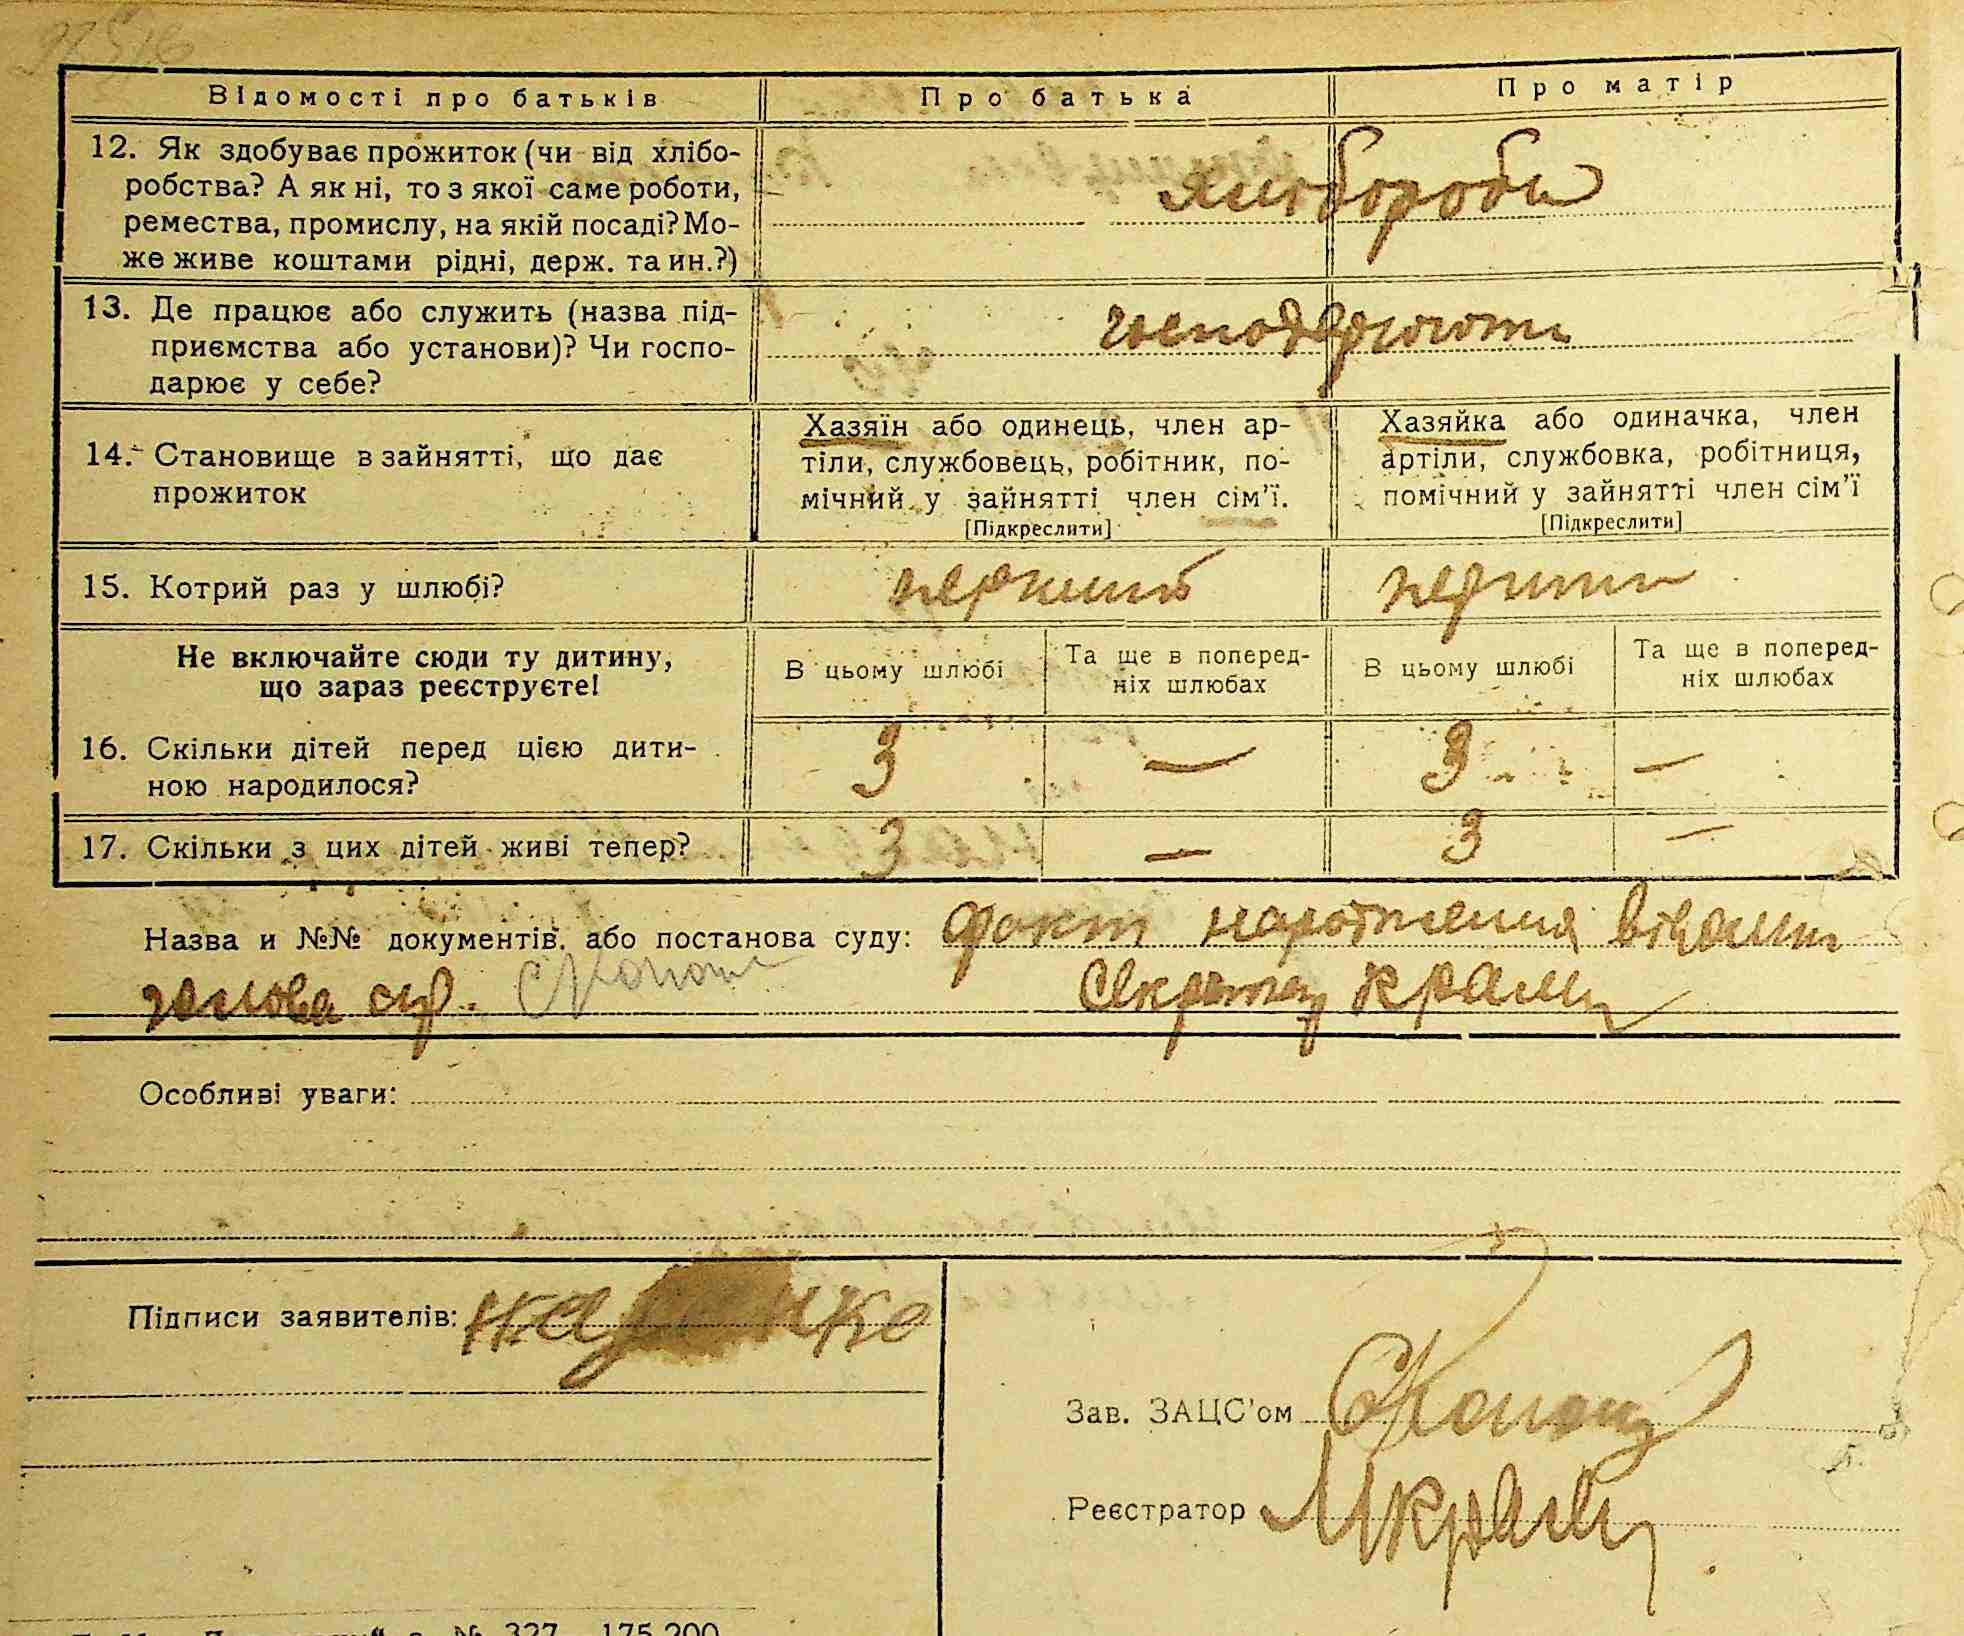 Відомості про батьків Про батька Про матір
12. Як здобуває прожиток (чи від хлібо-
робства? А як ні, то з якої саме роботи,
ремества, промислу, на якій посаді? Мо-
же живе коштами рідні, держ. та ин.?)
хлібороби
13. Де працює або служить (назва під-
приємства або установи)? Чи госпо-
дарює у себе?
14. Становище в зайнятті, що дає
прожиток
Хазяїн або одинець, член ар-
тіли, службовець, робітник, по-
мічний у зайнятті член сім'ї.
[Підкреслити]
Хазяйка або одиначка, член
артіли, службовка, робітниця,
помічний у зайнятті член сім'ї
[Підкреслити]
15. Котрий раз у шлюбі? перший
Не включайте сюди ту дитину,
що зараз реєструєте!
В цьому шлюбі Та ще в поперед-
ніх шлюбах
В цьому шлюбі Та ще в поперед-
ніх шлюбах
16. Скільки дітей перед цією дити-
ною народилося?
3 — 3 —
17. Скільки з цих дітей живі тепер? 3 — 3 —
Назва и №№ документів або постанова суду: факт
голова с/р. Секретар
Особливі уваги:
Підписи заявителів:
Зав. ЗАЦС'ом
Реєстратор
№ 327 175.200